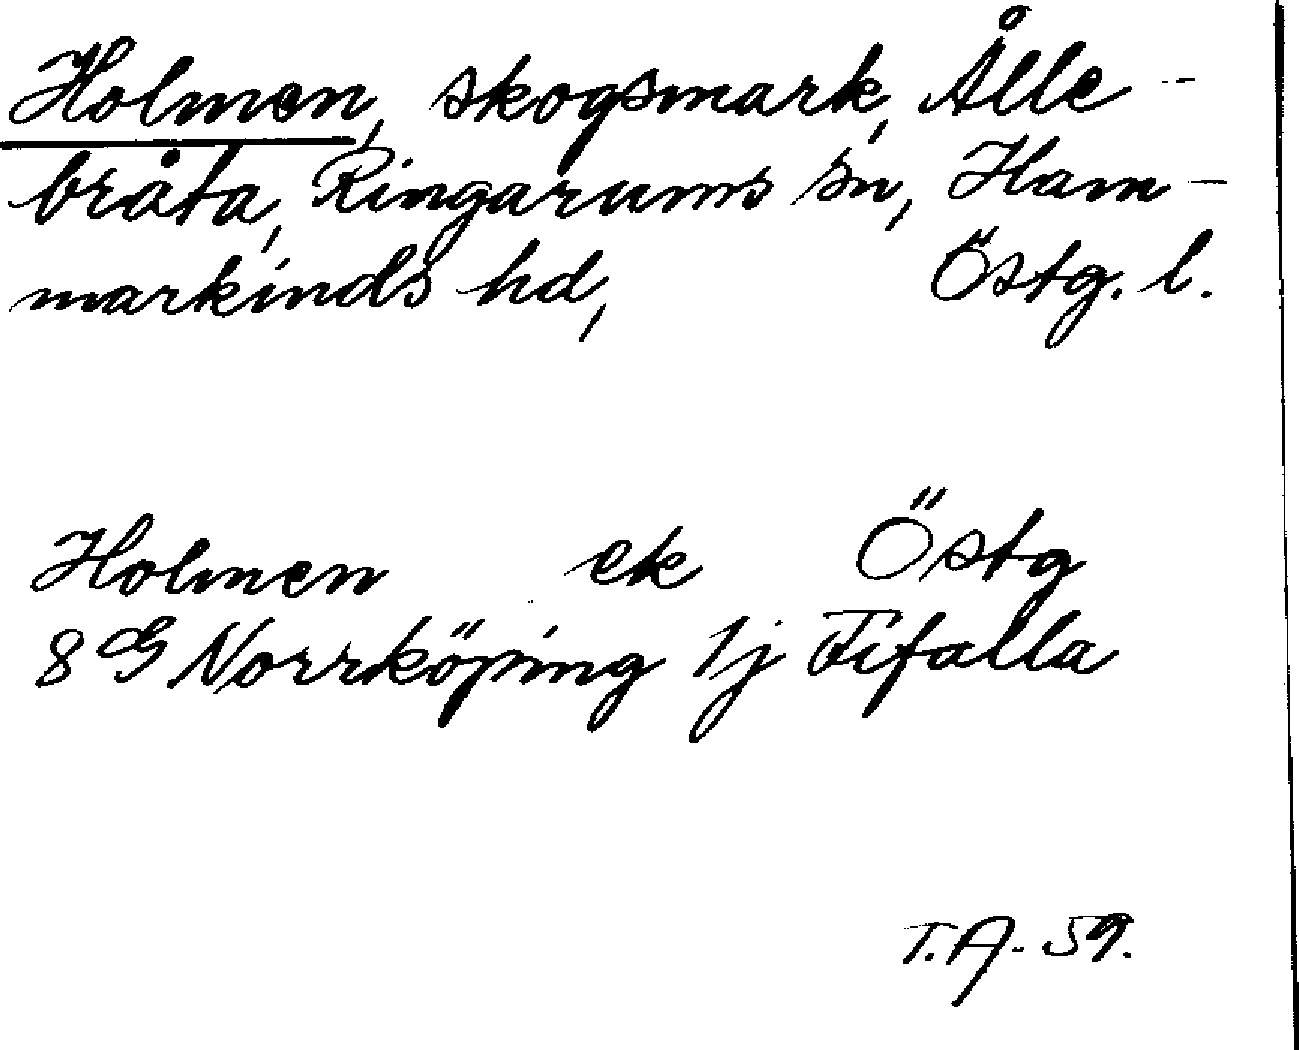 Holmen, skogsmark, Ålle-
bråta, Ringarums sn, Ham-
markinds hd, Östg. l.
Holmen ek Östg
8 G Norrköping 1j Fifalla
T.A. 59.